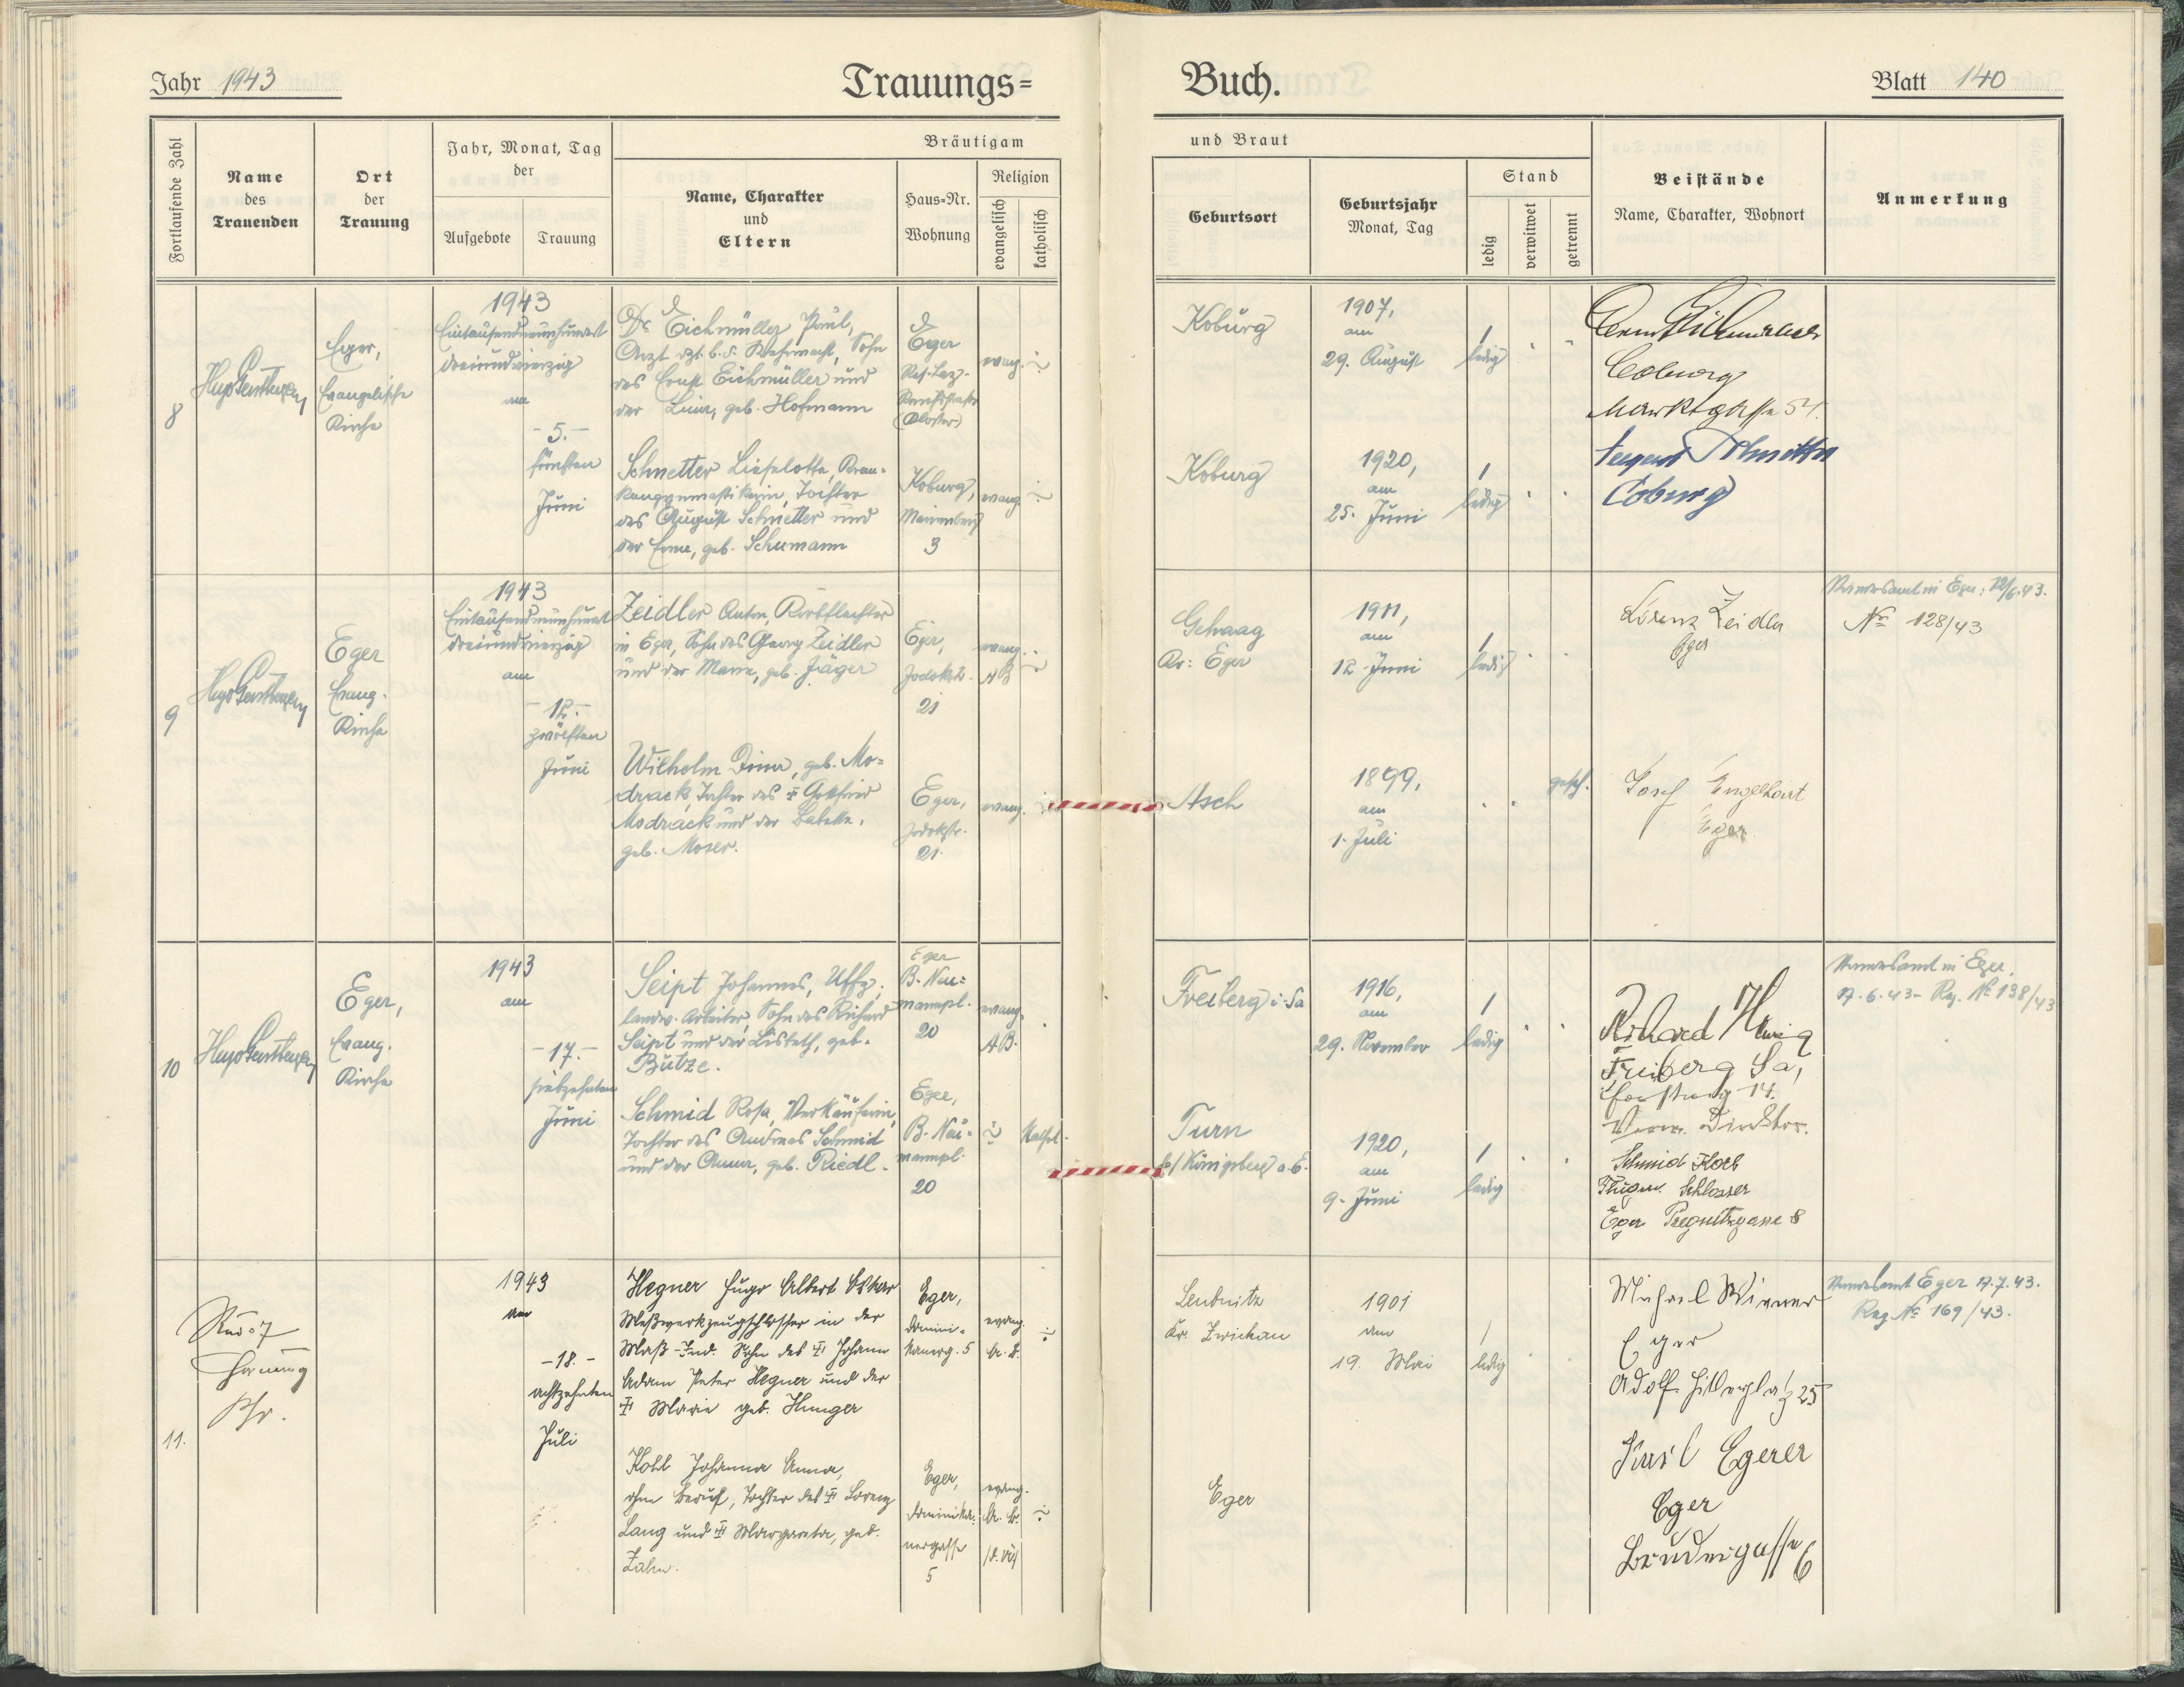 Jahr 1943
Trauungs=
Fortlaufende Zahl
Name
des
Trauenden
Ort
der
Trauung
Jahr, Monat, Tag
der
Aufgebote
Trauung
Bräutigam
Name, Charakter
und
Eltern
Haus=Nr.
Wohnung
Religion
evangelisch
katholisch
8
Eger,
Evangelische
Kirche
1943
Eintausendneunhundert
dreiundvierzig
am
- 5. -
fünften
Juni
Dr. Eichmüller Paul,
Arzt dzt. b. d. Wehrmacht, Sohn
des Ernst Eichmüller und
der Lina, geb. Hofmann
Eger
Res. Laz.
(Kloster)
evang.
Schnetter Lieselotte, Kran=
kengymnastikerin, Tochter
des August Schnetter und
der Erna, geb. Schumann
Koburg,
3
evang.
9
Eger
Evang.
Kirche
1943
Eintausendneunhundert
dreiundvierzig
am
- 12. -
zwölften
Juni
Zeidler Anton, Korbflechter
in Eger, Sohn des Georg Zeidler
und der Marie, geb. Jäger
Eger,
Jodokstr.
21
evang.
AB
Wilhelm Irma, geb. Mo=
drack, Tochter des Gottfried
Modrack und der Babette,
geb. Moser.
Eger,
Jodokstr.
21.
evang.
10
Eger,
Evang.
Kirche
1943
am
- 17. -
siebzehnten
Juni
Seipt Johannes, Uffz.,
landw. Arbeiter, Sohn des Richard
Seipt und der Lisbeth, geb.
Butze.
Eger
B. Neu=
mannpl.
20
evang.
AB.
Schmid Rosa, Verkäuferin,
Tochter des Andreas Schmid
und der Anna, geb. Riedl.
Eger,
B. Neu=
mannpl.
20
Kathol.
11.
Pfr.
1943
am
- 18. -
achtzehnten
Juli
Hegner Hugo Albert Oskar
Meßwerkzeugschlosser in der
Maß-Ind. Sohn des Johann
Adam Peter Hegner und der
Marie geb. Hunger
Eger,
Domini=
kanerg. 5
evang.
A. B.
Kohl Johanna Anna,
ohne Beruf, Tochter des Lorenz
Lang und Margareta, geb.
Zahn.
Eger,
Dominika=
nergasse
5
evang.
A. B.
Buch.
Blatt 140
und Braut
Geburtsort
Geburtsjahr
Monat, Tag
Stand
ledig
verwitwet
getrennt
Beistände
Name, Charakter, Wohnort
Anmerkung
Koburg
1907,
am
29. August
ledig
Coburg
Marktgasse
Koburg
1920,
am
25. Juni
ledig
Coburg
Gehaag
Kr: Eger
1911,
am
12. Juni
ledig
Lorenz Zeidler
Eger
Standesamt in Eger: 12/6.43.
№ 128/43
Asch
1899,
am
1. Juli
gesch.
Josef Engelhart
Eger
Freiberg i. Sa
1916,
am
29. November
ledig
Richard
Freiberg Sa,
14.
Direktor.
Standesamt in Eger,
17.6.43 - Reg. № 138/43
Turn
b/ Königsberg a. E.
1920,
am
9. Juni
ledig
Schmid
Schlosser
Eger 8
Leubnitz
Kr. Zwickau
1901
am
19. Mai
ledig
Michael Wiener
Eger
Adolf Hitlerplatz 25
Standesamt Eger 17.7.43.
Reg № 169/43.
Eger
Egerer
Eger
Brudergasse 6